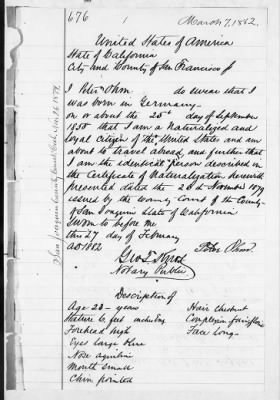 676
1
March 7. 1882.
United States of America
State of California
City and County of San Francisco
I Peter Ohm do swear that I
was born in Germany
on or about the 25th day of September
1858 that I am a Naturalized and
loyal citizen of the United States and am
about to travel abroad, and further that
I am the identical person described in
the Certificate of Naturalization herewith
presented dated the November 1879
issued by the County Court of the County
of San Joaquin State of California
Sworn to before me
this 27 day of February
AD 1882
Peter Ohm
Geo. T. Knox
Notary Public
Description of
Age 23 years
Stature 6 feet
Forehead high
Eyes large blue
Nose aquiline
Mouth small
Chin pointed
Hair chestnut
Complexion fair
Face Long
San Joaquin County Court